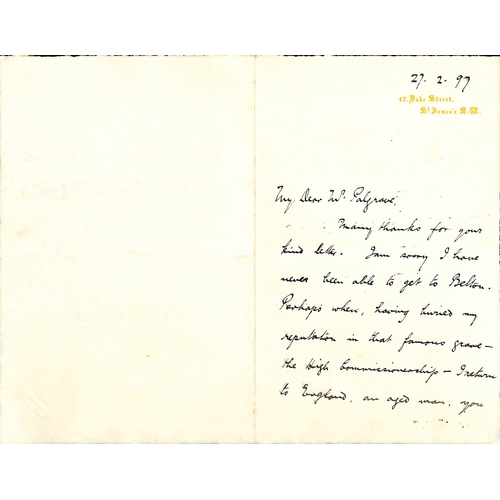 27. 2. 97
47, Duke Street,
St James's S.W.
My Dear Mr Palgrave,
Many thanks for your
kind letter. I am sorry I have
never been able to get to Belton.
Perhaps when, having buried my
reputation in that famous grave —
the High Commissionership — I return
to England, an aged man, you